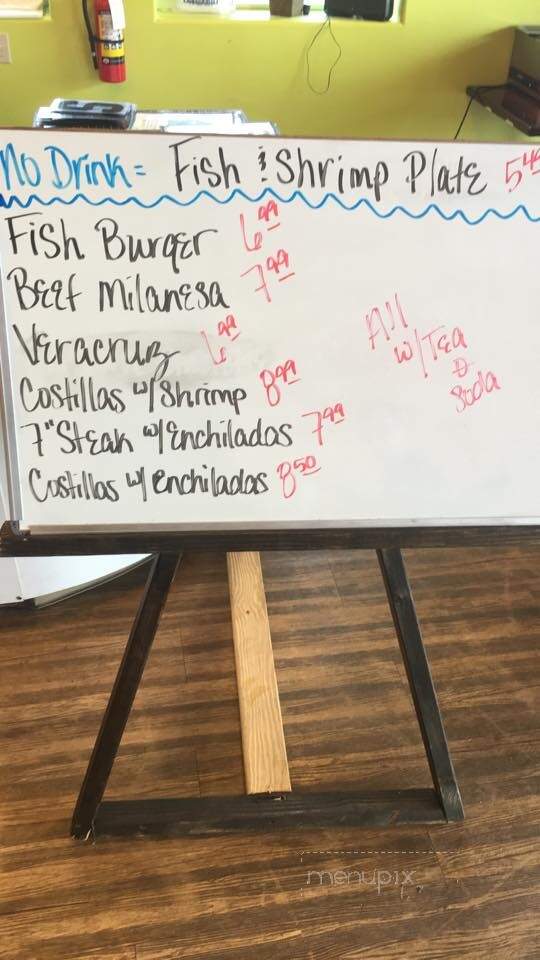 No Drink = Fish & Shrimp Plate 5.49
Fish Burger 6.99
Beef Milanesa 7.99
Veracruz 6.99
Costillas w/Shrimp 8.99
7" Steak w/Enchiladas 7.99
Costillas w/ Enchiladas 8.50
All
w/Tea
or
Soda
menupix